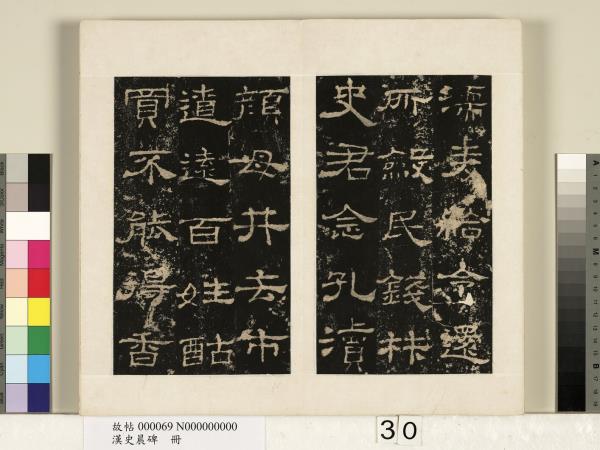 濡麥給令還
所斂民錢材
史君念孔瀆
顏母井去市
遼遠百姓酤
買不能得香
故帖 000069 N000000000
漢史晨碑 冊
30